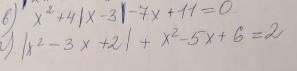 в) x² + 4|x - 3| - 7x + 11 = 0
г) |x² - 3x + 2| + x² - 5x + 6 = 2